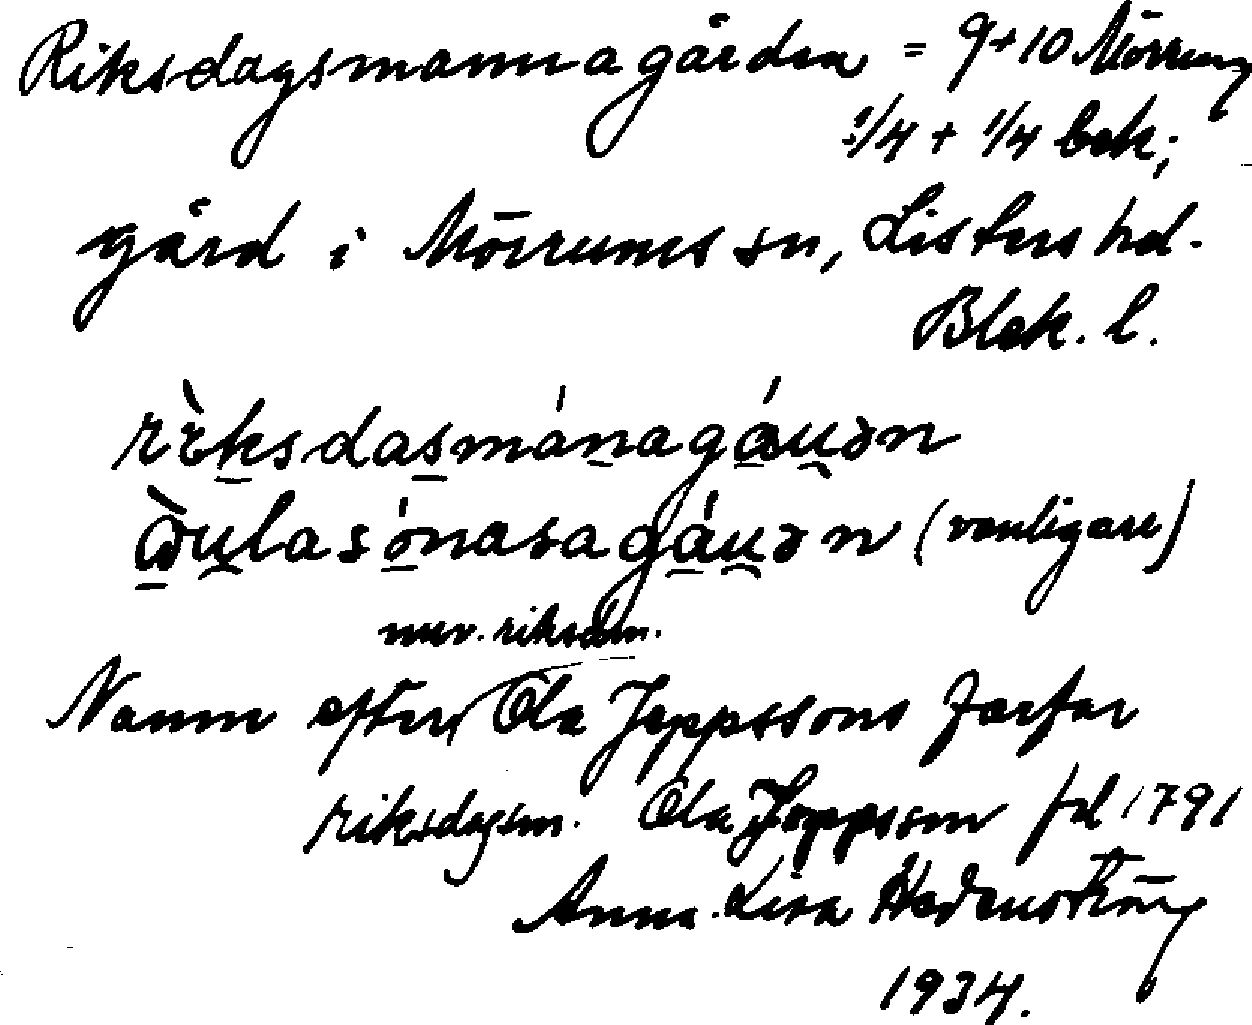 Riksdagsmannagården = 9+10 Mörrum
1/4 + 1/4 bek;
gård i Mörrums sn, Listers hd.
Blek. l.
rɛ̀ksdasmánagáu̯ən
u̯lasónasagáu̯ən (vanligare)
nuv. riksdm.
Namn efter Ola Jeppssons farfar
riksdagsm. Ola Jeppsson fd 1791
Anna-Lisa Hedenström
1934.